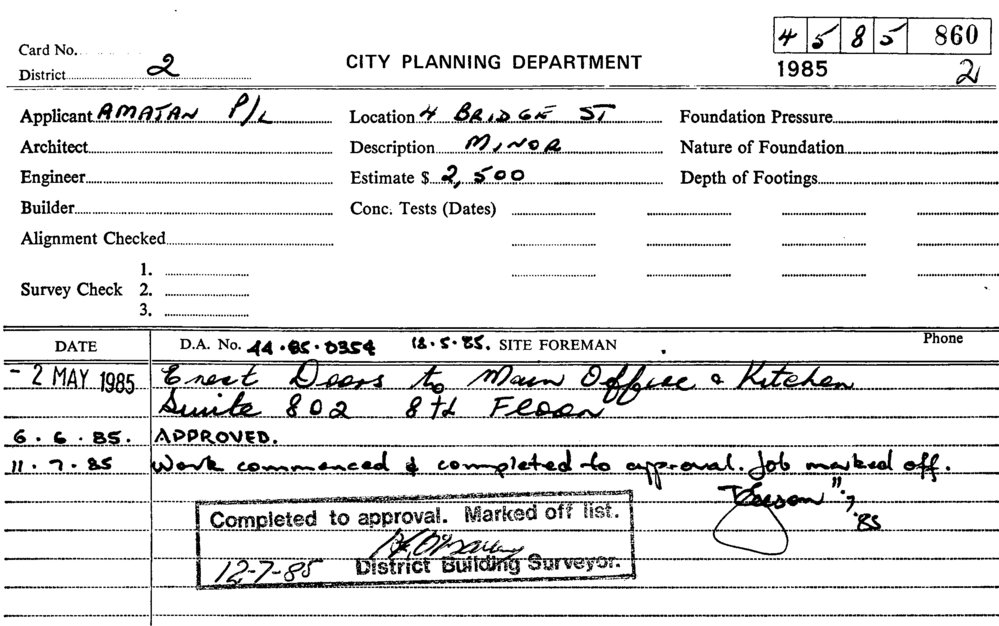 4 5 8 5 860
Card No.
District 2 CITY PLANNING DEPARTMENT 1985 2
Applicant AMATAN P/L Location 4 BRIDGE ST Foundation Pressure
Architect Description MINOR Nature of Foundation
Engineer Estimate $ 2,500 Depth of Footings
Builder Conc. Tests (Dates)
Alignment Checked
1.
Survey Check 2.
3.
DATE D.A. No. 44.85.0354 13.5.85. SITE FOREMAN Phone
- 2 MAY 1985 Erect Doors to Main Office & Kitchen
Suite 802 8th Floor
6.6.85. APPROVED.
11.7.85 Work commenced & completed to approval. Job marked off.
11.7.85
Completed to approval. Marked off list.
12-7-85 District Building Surveyor.